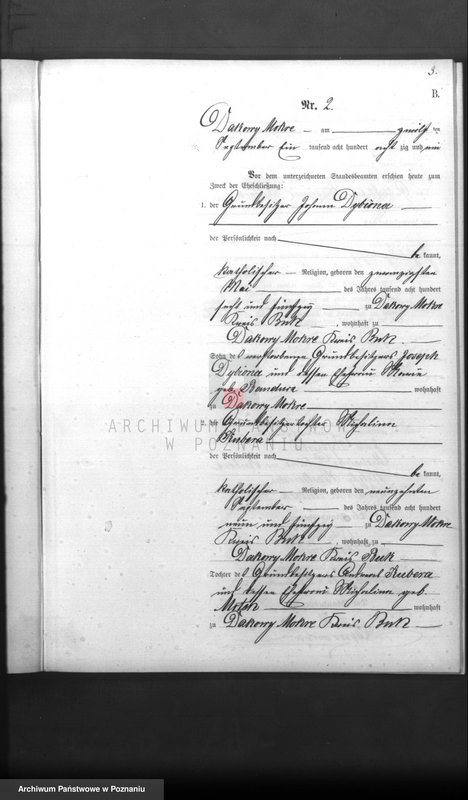 3.
B.
Nr. 2.
Dakowy Mokre — am zwölf ten
September Ein tausend acht hundert acht zig und
Vor dem unterzeichneten Standesbeamten erschien heute zum
Zweck der Eheschließung:
1. der Grundbesitzer Johann Dybiona
der Persönlichkeit nach
be kannt,
katholischer — Religion, geboren den zwanzigsten
Mai des Jahres tausend acht hundert
sechs und fünfzig zu Dakowy Mokre
Kreis Buk, wohnhaft zu
Dakowy Mokre Kreis Buk
Sohn des verstorbenen Grundbesitzers Joseph
Dybiona und dessen Ehefrau Marie
geb. Kandura wohnhaft
zu Dakowy Mokre
die Grundbesitzertochter Michalina
Kubera
der Persönlichkeit nach
be kannt,
katholischer — Religion, geboren den neunzehnten
September des Jahres tausend acht hundert
neun und fünfzig zu Dakowy Mokre
Kreis Buk, wohnhaft zu
Dakowy Mokre Kreis Buk
Tochter des Grundbesitzers Kubera
und dessen Ehefrau Michalina geb.
wohnhaft
zu Dakowy Mokre Kreis Buk
ARCHIWUM PAŃSTWOWE
W POZNANIU
Archiwum Państwowe w Poznaniu